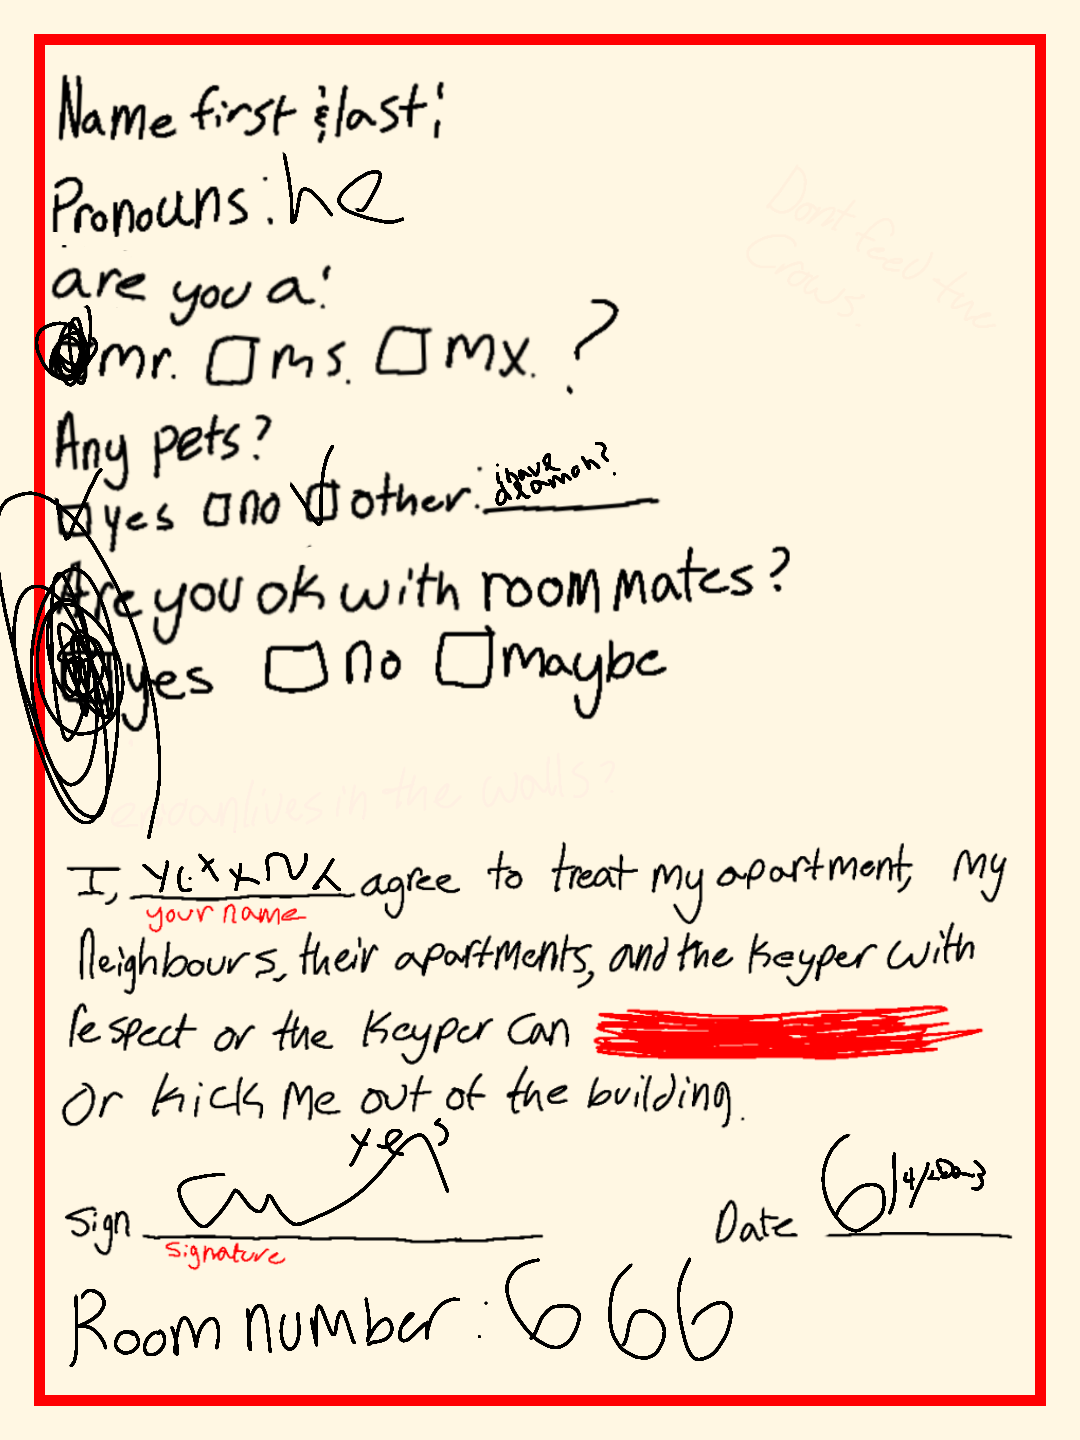 Name first & last:
Pronouns: he
Dont feed the
Crows.
are you a:
mr. ms. mx. ?
Any pets?
yes no other: i have
Are you ok with roommates?
yes no maybe
lives in the walls?
I, agree to treat my apartment, my
your name
Neighbours, their apartments, and the Keyper with
respect or the Keyper can
or kick me out of the building.
Sign Date 6/4/
signature
Room number: 666